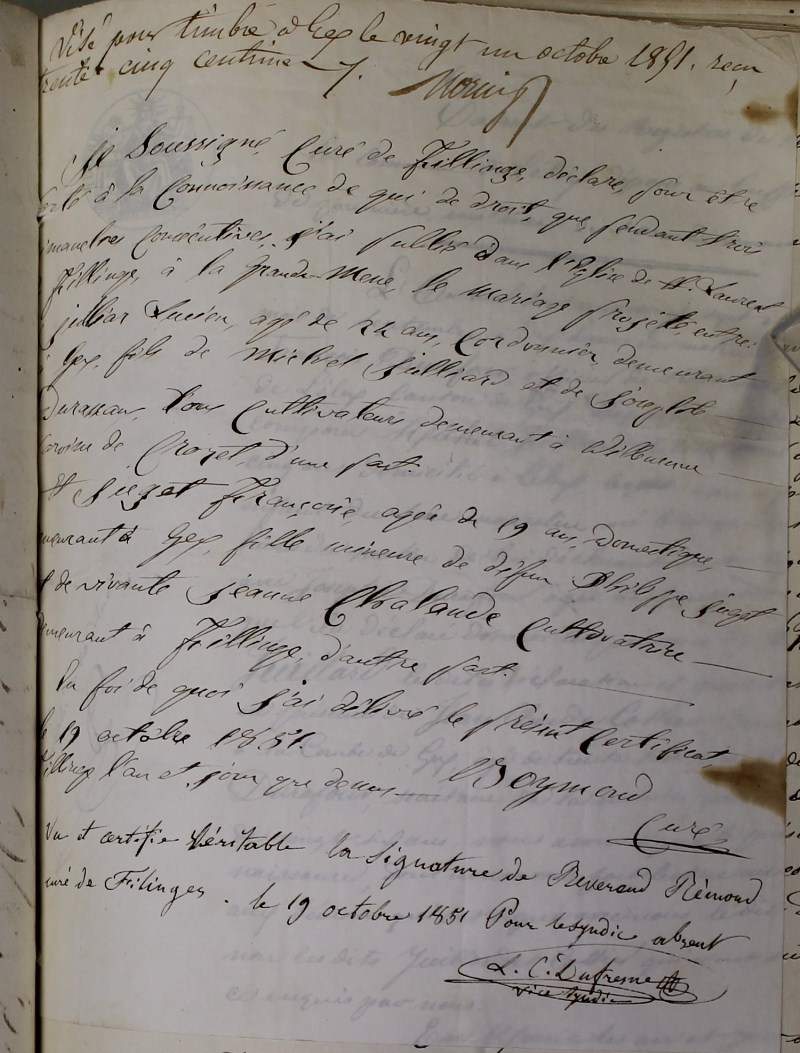 Visé pour timbre à Gex le vingt un octobre 1851. reçu
trente cinq centimes
Je Soussigné, Curé de Fillinge, déclare, pour être
porté à la Connoissance de qui de droit, que, pendant trois
dimanches Consécutives, j'ai publié dans l'Eglise de St Laurent
Fillinge, à la Grande-Messe, le mariage projeté, entre:
julliar Lucien, agé de 24 ans, Cordonnier, demeurant
à Gex, fils de Michel Julliard et de
Durassan, tous Cultivateurs demeurant à
paroisse de Crozet, d'une part.
Et Françoise, agée de 19 ans, Domestique,
demeurant à Gex, fille mineure de défun Philippe
et de vivante jeanne Chalande Cultivatrice
demeurant à Fillinge, d'autre part.
En foi de quoi j'ai délivré le présent Certificat
le 19 octobre 1851.
Fillinge l'an et jour que dessus
Curé
Vu et certifie Véritable la signature de Reverend Rémond
curé de Filinges. le 19 octobre 1851 Pour le syndic absent
L. C. Dufresne
vice syndic